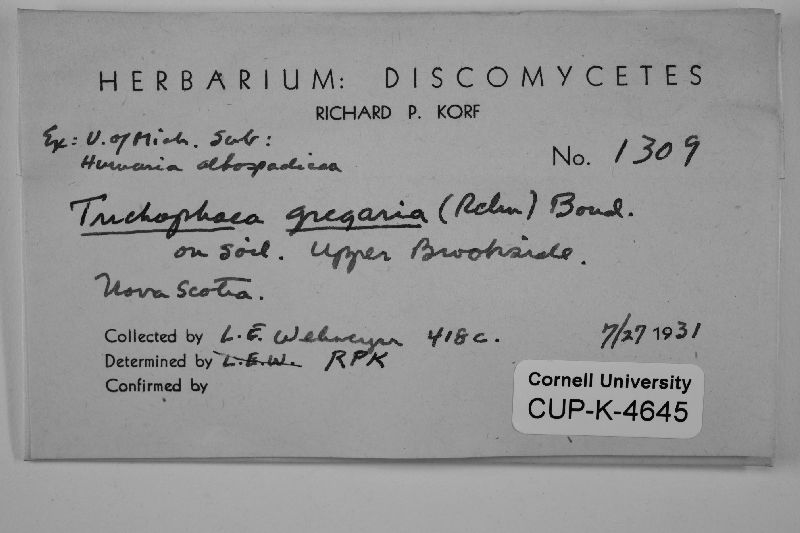 HERBARIUM: DISCOMYCETES
RICHARD P. KORF
Ex: U. of Mich. Sub:
Humaria albospadicea
No. 1309
Trichophaea gregaria (Rehm) Boud.
on soil. Upper Brookside.
Nova Scotia.
Collected by L. E. Wehmeyer 418c. 7/27 1931
Determined by L.E.W. RPK
Confirmed by
Cornell University
CUP-K-4645